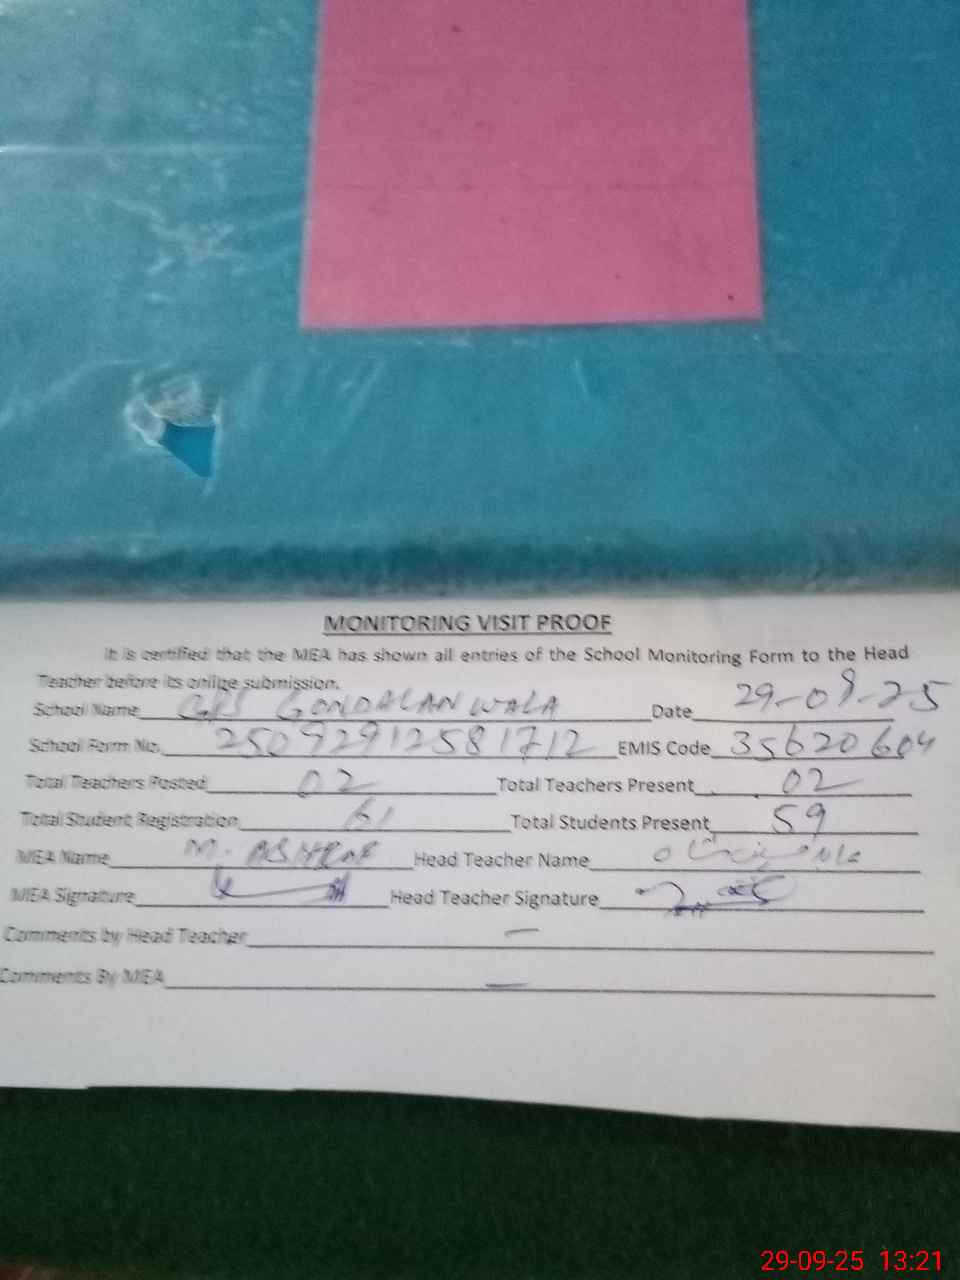 MONITORING VISIT PROOF
It is certified that the MEA has shown all entries of the School Monitoring Form to the Head
Teacher before its online submission.
School Name GPS GONDALANWALA Date 29-09-25
School Form No. 25092912581712 EMIS Code 35620604
Total Teachers Posted 02 Total Teachers Present 02
Total Student Registration 61 Total Students Present 59
MEA Name M. ASHRAF Head Teacher Name
MEA Signature Head Teacher Signature
Comments by Head Teacher —
Comments By MEA —
29-09-25 13:21